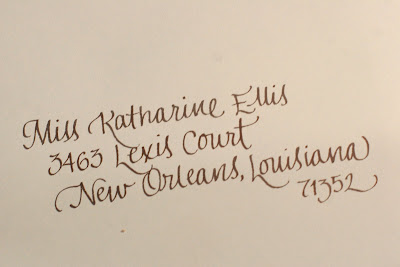 Miss Katharine Ellis
3463 Lexis Court
New Orleans, Louisiana
71352